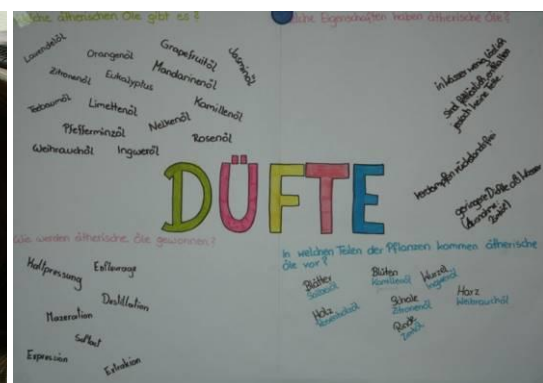 Welche ätherischen Öle gibt es?
Lavendelöl
Orangenöl
Grapefruitöl
Jasminöl
Zitronenöl
Eukalyptus
Mandarinenöl
Teebaumöl
Limettenöl
Kamillenöl
Pfefferminzöl
Nelkenöl
Rosenöl
Weihrauchöl
Ingweröl
Welche Eigenschaften haben ätherische Öle?
in Wasser wenig löslich
sind fettlöslich, enthalten
jedoch keine Fette
verdampfen rückstandsfrei
geringere Dichte als Wasser
(Ausnahme:
Zimtöl)
DÜFTE
Wie werden ätherische Öle gewonnen?
Kaltpressung
Enfleurage
Destillation
Mazeration
Expression
Extraktion
In welchen Teilen der Pflanzen kommen ätherische
Öle vor?
Blätter
Blüten
Kamillenöl
Wurzel
Ingweröl
Holz
Rosenholzöl
Schale
Zitronenöl
Harz
Weihrauchöl
Rinde
Zimtöl